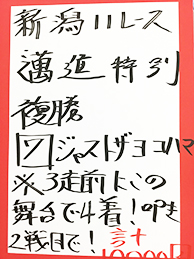 新潟11レース
邁進特別
複勝
⑰ジャストザヨコハマ
※3走前にこの
舞台で4着!叩き
2戦目で!計
10000円